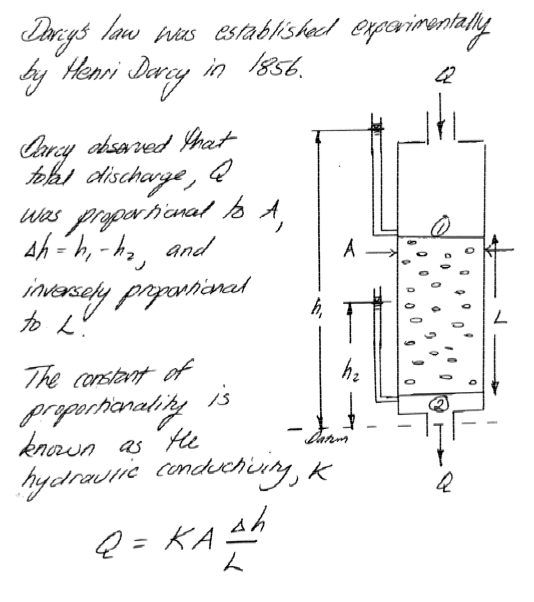 Darcy's law was established experimentally
by Henri Darcy in 1856.
Darcy observed that
total discharge, Q
was proportional to A,
Δh = h₁ - h₂, and
inversely proportional
to L.
The constant of
proportionality is
known as the
hydraulic conductivity, K
Q = KA Δh/L
Q
①
A
h₁
L
h₂
②
Datum
Q